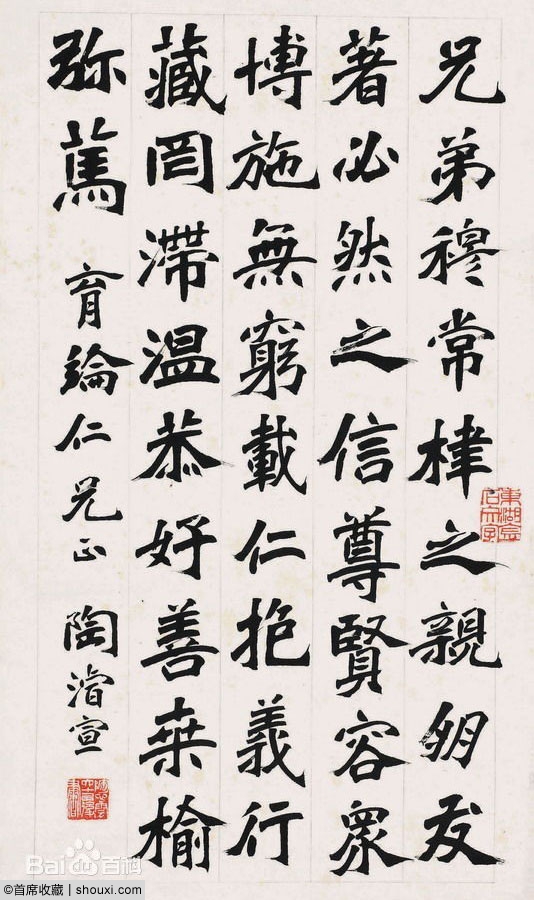 兄弟穆常棣之親朋友
著必然之信尊賢容眾
博施無窮載仁抱義行
藏罔滯温恭好善桑榆
弥篤 育綸仁兄正 陶濬宣
Bai百科
©首席收藏 | shouxi.com